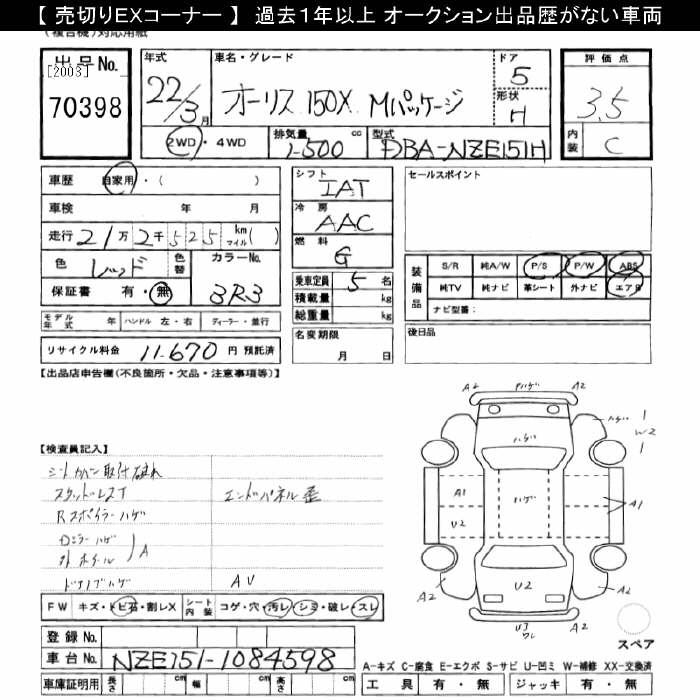 【 売切りEXコーナー 】 過去1年以上 オークション出品歴がない車両
(複合機)対応用紙
出品No.
[2003]
70398
年式
22/3月
車名・グレード
オーリス 150X Mパッケージ
ドア
5
形状
H
評価点
3.5
内装
C
2WD・4WD
排気量
1-500 cc
型式
DBA-NZE151H
車歴 自家用・( )
車検 年 月
走行 21万2千525 km マイル( )
色 レッド
色替
カラーNo.
3R3
保証書 有・無
シフト
IAT
冷房
AAC
燃料
G
乗車定員 5 名
積載量 kg
総重量 kg
名変期限
月 日
セールスポイント
装備品
S/R 純A/W P/S P/W ABS
純TV 純ナビ 革シート 外ナビ エアB
ナビ型番:
後日品
モデル年式 年 ハンドル 左・右 ディーラー・並行
リサイクル料金 11-670 円 預託済
【出品店申告欄(不良箇所・欠品・注意事項等)】
【検査員記入】
シートカバー取付 破れ
スタッドレスT
エンドパネル歪
Rスポイラーハゲ
Dミラーハゲ
外ホイール A
ドアノブハゲ
AU
FW キズ・トビ石・割レX
シート内装 コゲ・穴・汚レ・シミ・破レ・スレ
登録No.
車台No. NZE151-1084598
車庫証明用 長さ cm 幅 cm 高さ cm
A2 Pハゲ A2
ハゲ
ハゲ 1
W2
1
A1
U2
ハゲ
A1
U2
A2
A2
スペア
A-キズ C-腐食 E-エクボ S-サビ U-凹ミ W-補修 XX-交換済
工具 有・無 ジャッキ 有・無